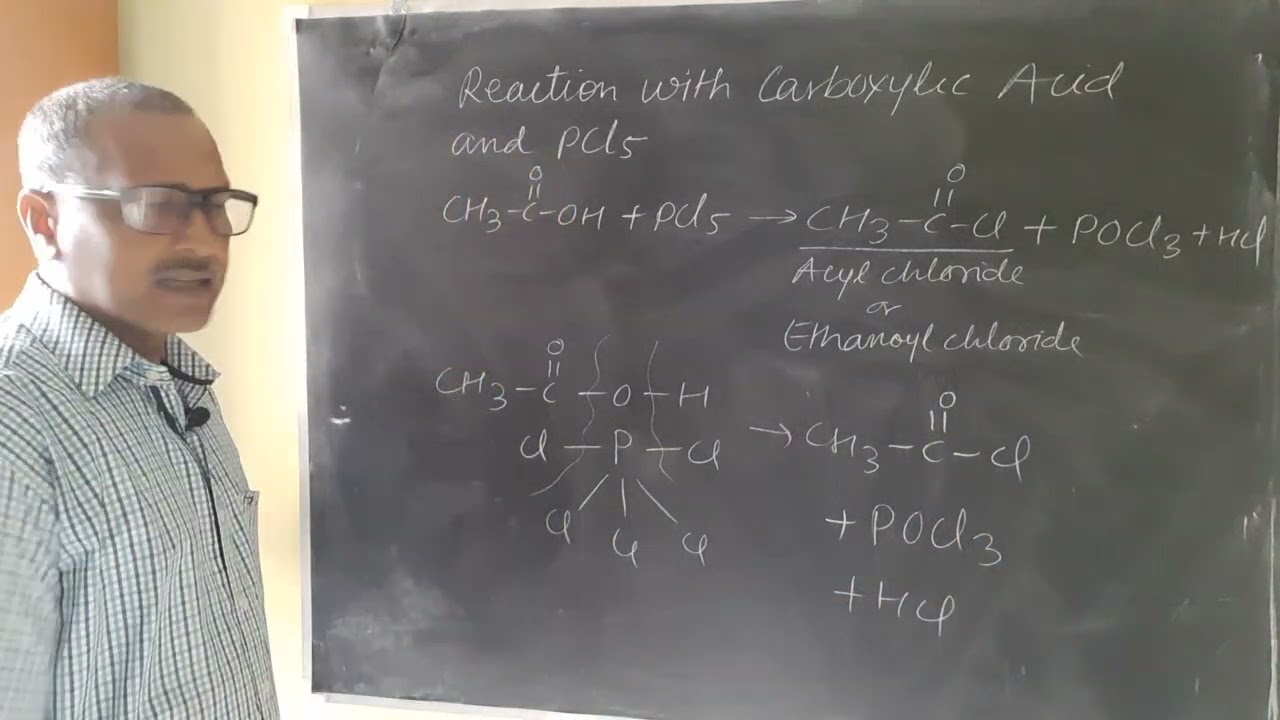 Reaction with Carboxylic Acid
and PCl5
O
||
CH3-C-OH + PCl5 → CH3-C-Cl + POCl3 + HCl
O
||
Acyl chloride
or
Ethanoyl chloride
O
||
CH3-C-O-H
Cl-P-Cl
Cl Cl Cl
O
||
→ CH3-C-Cl
+ POCl3
+ HCl